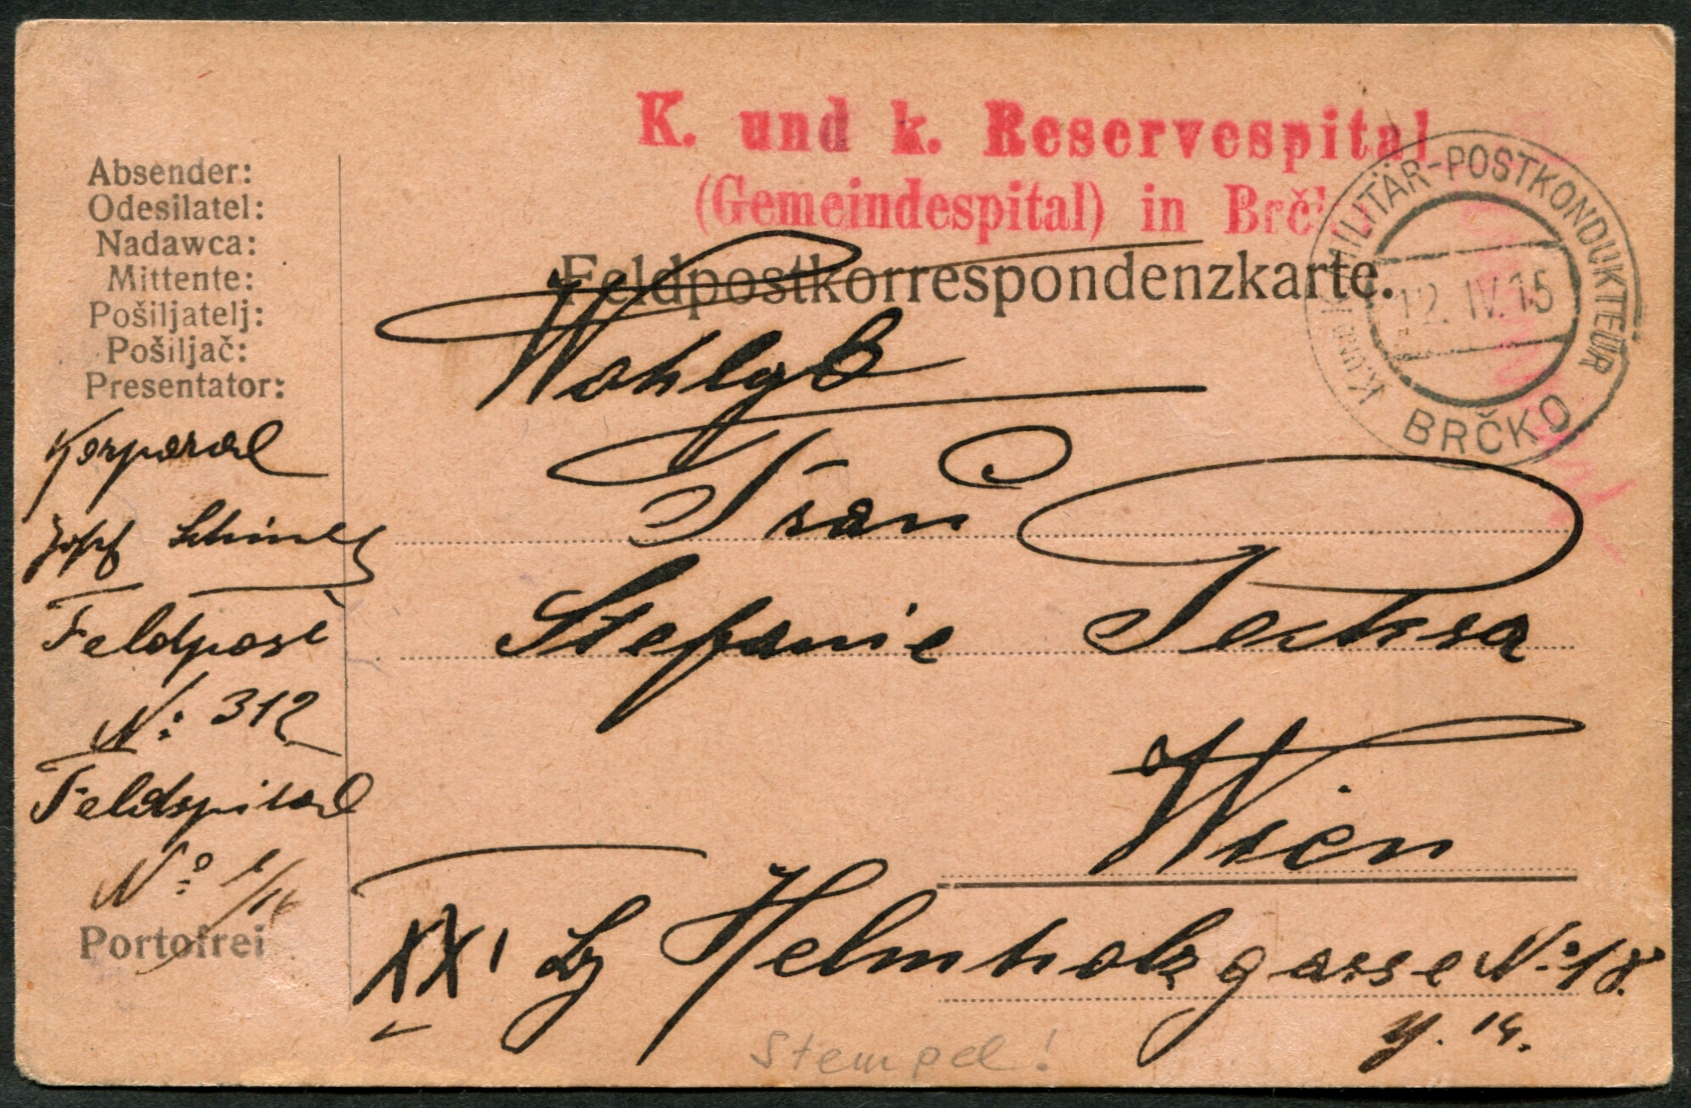 K. und k. Reservespital
(Gemeindespital) in Brč
K. und K. MILITÄR-POSTKONDUKTEUR
12. IV. 15
BRČKO
Feldpostkorrespondenzkarte.
Absender:
Odesilatel:
Nadawca:
Mittente:
Pošiljatelj:
Pošiljač:
Presentator:
Korporal
Josef
Feldpost
No: 312
Feldspital
No: 1/14
Portofrei
Wohlgb
Frau
Stefanie
Wien
XXI Bz Helmholzgasse No. 18.
14.
Stempel!